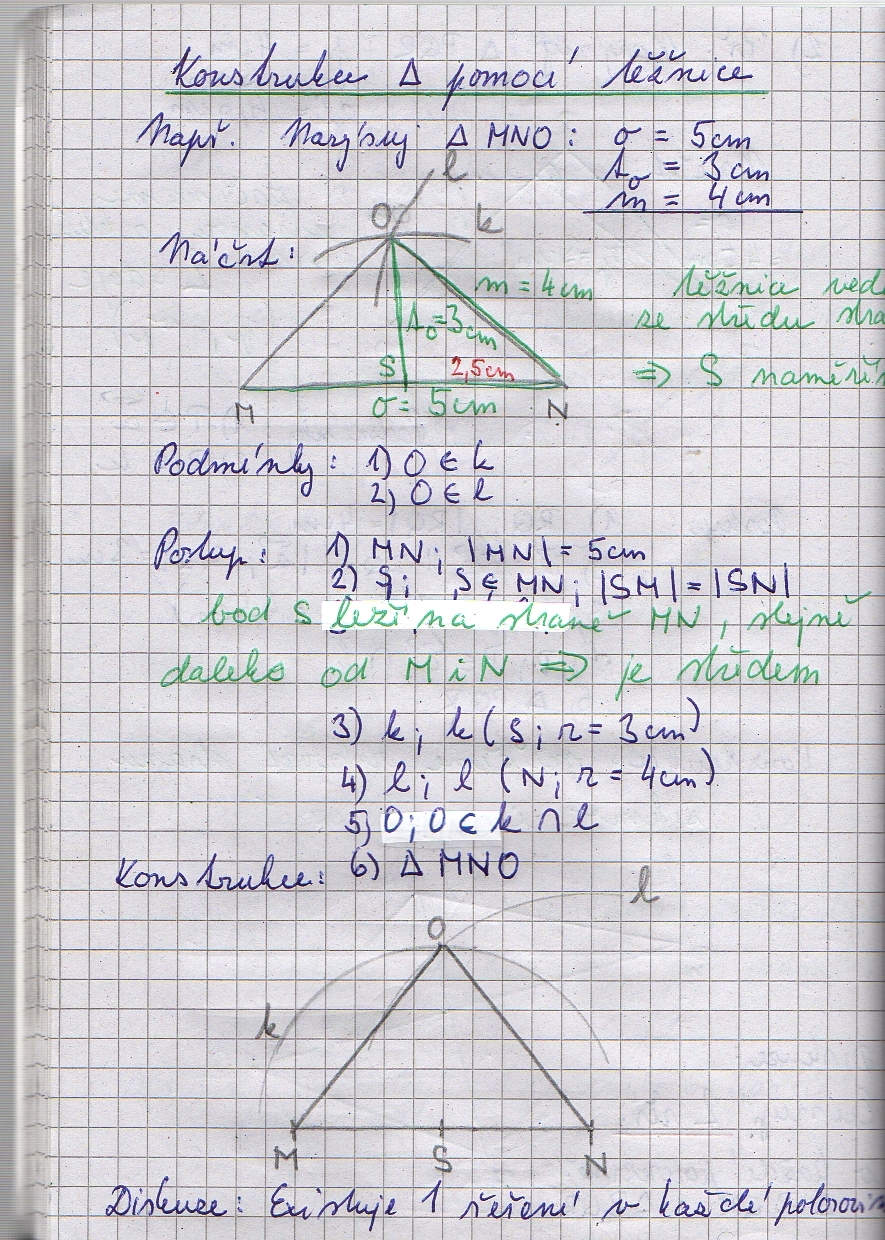 Konstrukce Δ pomocí těžnice
Např. Narýsuj Δ MNO: o = 5cm
t₀ = 3cm
m = 4cm
l
O
k
Náčrt:
m = 4cm
těžnice vede
t₀=3cm
ze středu stra
S
2,5cm
⇒ S naměřím
M
o = 5cm
N
Podmínky: 1) O ∈ k
2) O ∈ l
Postup: 1) MN; |MN| = 5cm
2) S; S ∈ MN; |SM| = |SN|
bod S leží na straně MN, stejně
daleko od M i N ⇒ je středem
3) k; k (S; r = 3cm)
4) l; l (N; r = 4cm)
5) O; O ∈ k ∩ l
Konstrukce: 6) Δ MNO
l
O
k
M S N
Diskuze: Existuje 1 řešení v každé polorovin